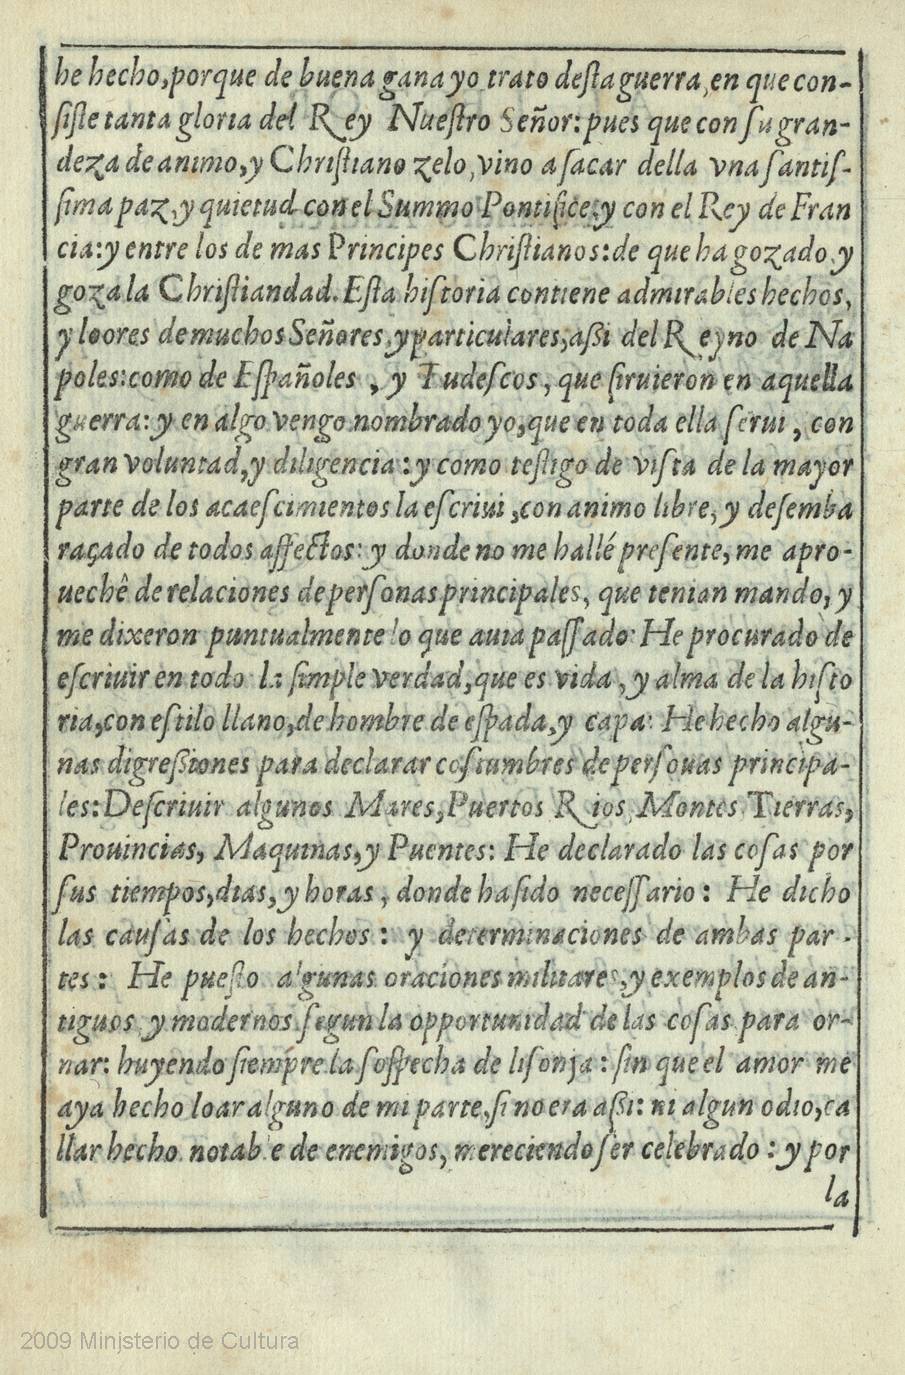 he hecho, porque de buena gana yo trato desta guerra, en que con-
ſiſte tanta gloria del Rey Nueſtro Señor: pues que con ſu gran-
deza de animo, y Chriſtiano zelo, vino a ſacar della vna ſantiſ-
ſima paz, y quietud con el Summo Pontifice, y con el Rey de Fran
cia: y entre los de mas Principes Chriſtianos: de que ha gozado y
goza la Chriſtiandad. Eſta hiſtoria contiene admirables hechos,
y loores de muchos Señores, y particulares, aßi del Reyno de Na
poles: como de Eſpañoles , y Tudeſcos, que ſiruieron en aquella
guerra: y en algo vengo nombrado yo, que en toda ella ſerui , con
gran voluntad, y diligencia: y como teſtigo de viſta de la mayor
parte de los acaeſcimientos la eſcriui, con animo libre, y deſemba
raçado de todos affectos: y donde no me hallé preſente, me apro-
uechê de relaciones de perſonas principales, que tenian mando, y
me dixeron puntualmente lo que auia paſſado: He procurado de
eſcriuir en todo la ſimple verdad, que es vida , y alma de la hiſto
ria, con eſtilo llano, de hombre de eſpada, y capa: He hecho algu-
nas digreßiones para declarar coſtumbres de perſonas principa-
les: Deſcriuir algunos Mares, Puertos Rios, Montes Tierras,
Prouincias, Maquinas, y Puentes: He declarado las coſas por
ſus tiempos, dias, y horas , donde ha ſido neceſſario: He dicho
las cauſas de los hechos: y determinaciones de ambas par-
tes: He pueſto algunas oraciones militares, y exemplos de an-
tiguos y modernos, ſegun la opportunidad de las coſas para or-
nar: huyendo ſiempre la ſoſpecha de liſonja: ſin que el amor me
aya hecho loar alguno de mi parte, ſi no era aßi: ni algun odio, ca
llar hecho notable de enemigos, mereciendo ſer celebrado: y por
la
2009 Ministerio de Cultura